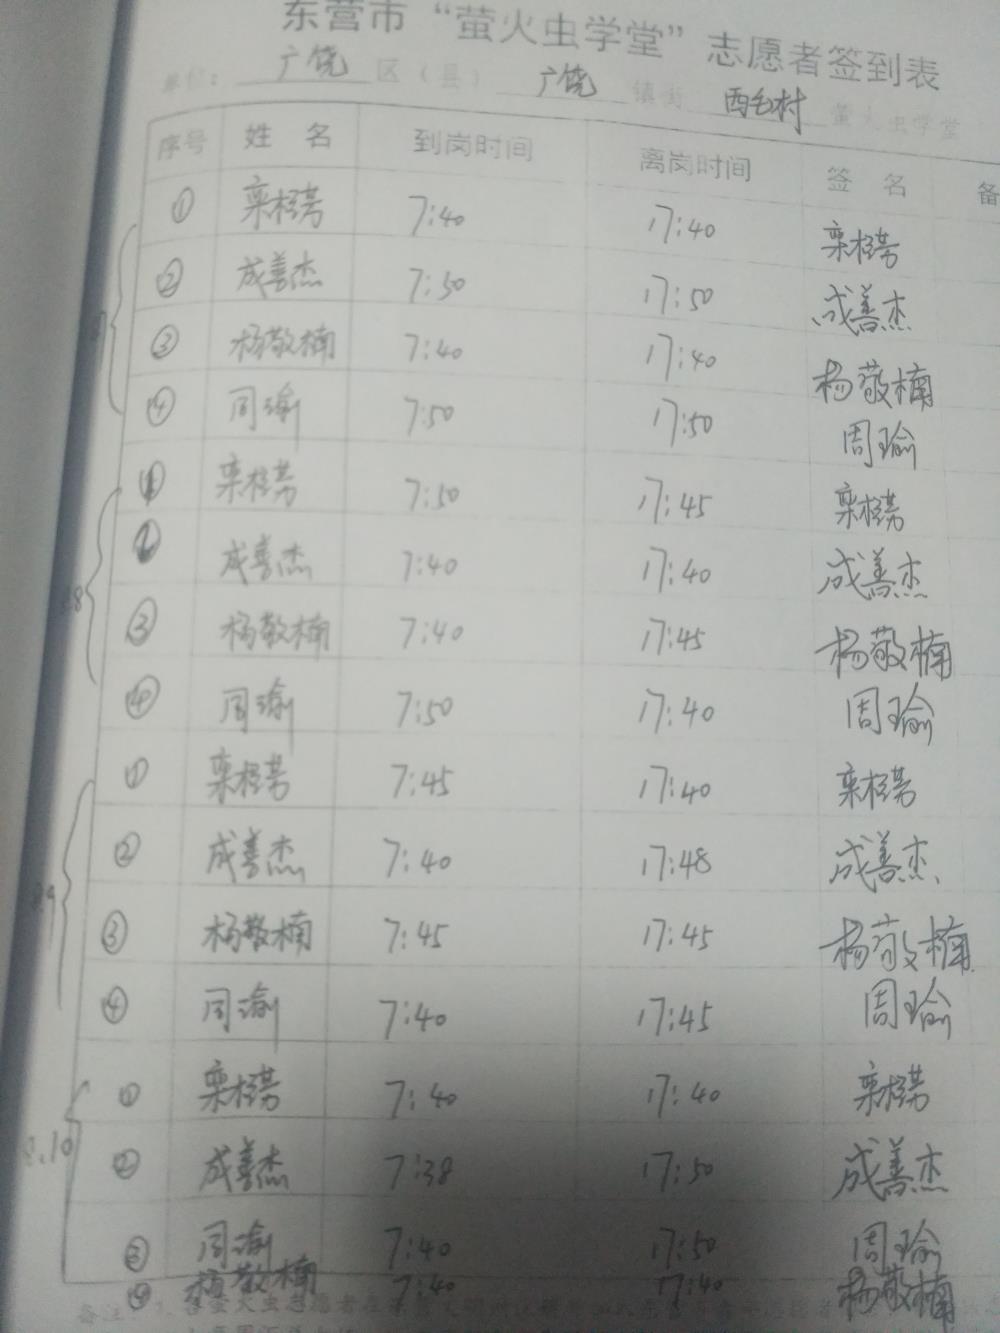 东营市“萤火虫学堂”志愿者签到表
单位： 广饶 区（县） 广饶 镇街 西毛村 萤火虫学堂
序号 姓名 到岗时间 离岗时间 签名 备
① 栾樳芳 7:40 17:40 栾樳芳
② 成善杰 7:50 17:50 成善杰
③ 杨敬楠 7:40 17:40 杨敬楠
④ 周瑜 7:50 17:50 周瑜
① 栾樳芳 7:50 17:45 栾樳芳
② 成善杰 7:40 17:40 成善杰
③ 杨敬楠 7:40 17:45 杨敬楠
④ 周瑜 7:50 17:40 周瑜
① 栾樳芳 7:45 17:40 栾樳芳
② 成善杰 7:40 17:48 成善杰
③ 杨敬楠 7:45 17:45 杨敬楠
④ 周瑜 7:40 17:45 周瑜
① 栾樳芳 7:40 17:40 栾樳芳
8.10 ② 成善杰 7:38 17:50 成善杰
③ 周瑜 7:40 17:50 周瑜
④ 杨敬楠 7:40 17:40 杨敬楠